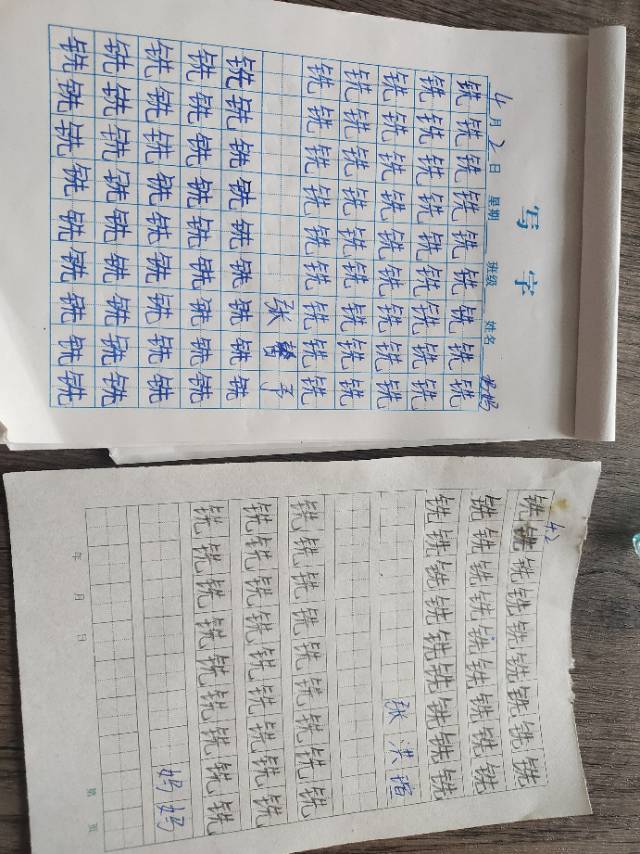 写字
4月2日 星期 班级 姓名 妈妈
铣铣铣铣铣铣铣铣铣
铣铣铣铣铣铣铣铣铣
铣铣铣铣铣铣铣铣铣
铣铣铣铣铣铣铣铣铣
铣铣铣铣铣铣铣铣铣
张 予
铣铣铣铣铣铣铣铣铣
铣铣铣铣铣铣铣铣铣
铣铣铣铣铣铣铣铣铣
铣铣铣铣铣铣铣铣铣
铣铣铣铣铣铣铣铣铣
4.2
铣铣铣铣铣铣铣铣铣
铣铣铣铣铣铣铣铣铣
铣铣铣铣铣铣铣铣铣
张洪瑄
铣铣铣铣铣铣铣铣铣
铣铣铣铣铣铣铣铣铣
铣铣铣铣铣铣铣铣铣
妈妈
年 月 日 第 页